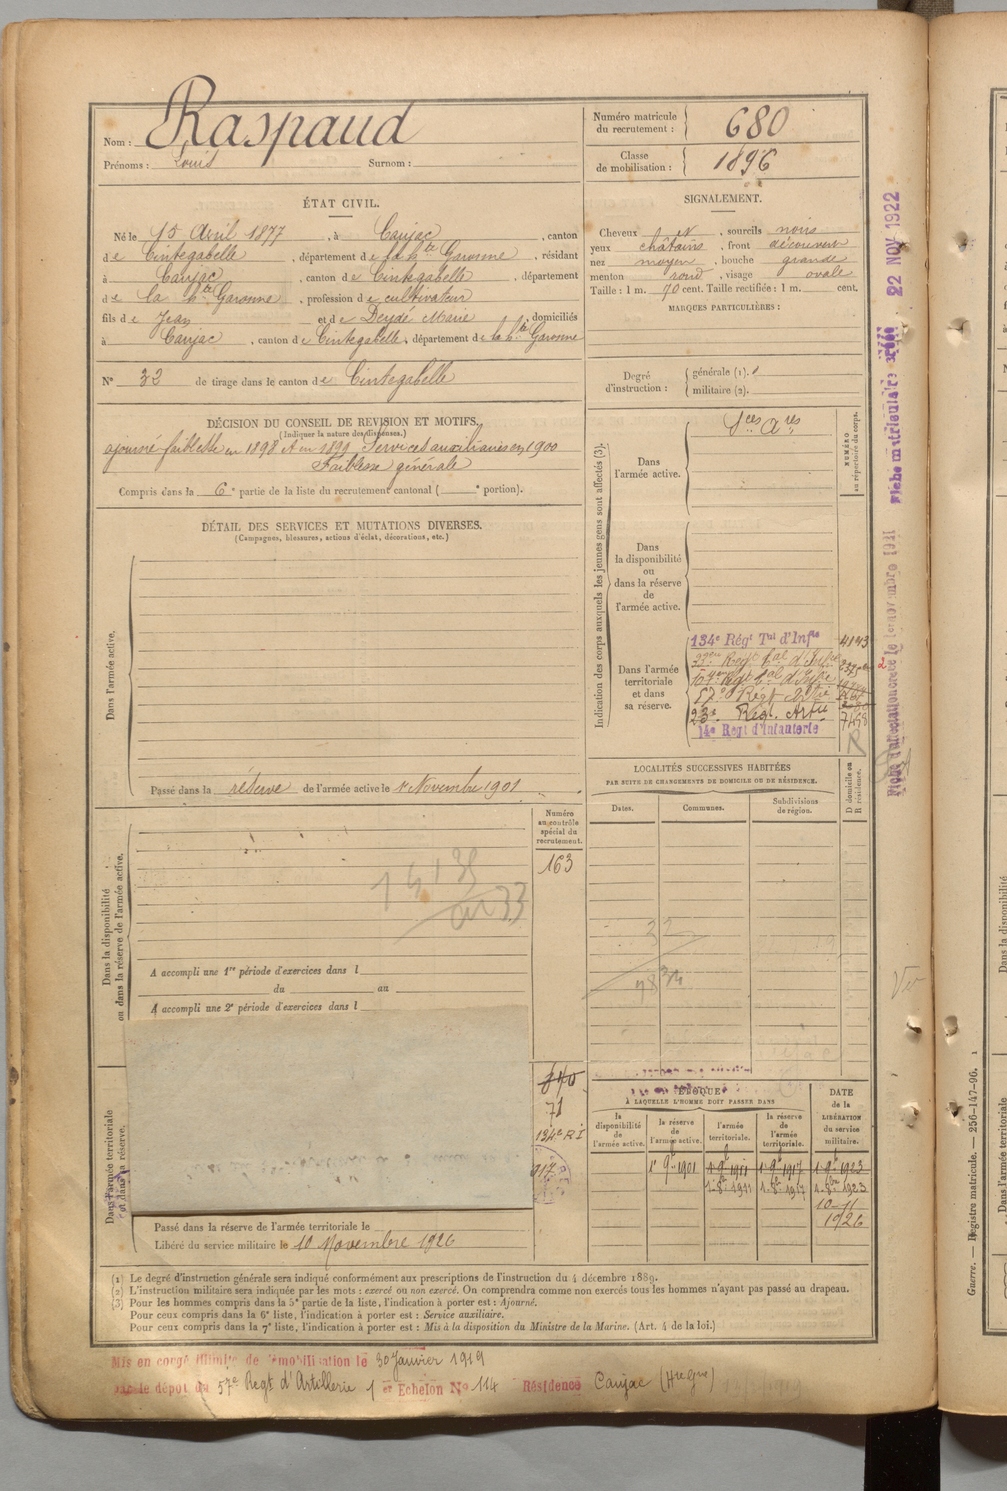 Nom : Raspaud
Prénoms : Louis Surnom :
Numéro matricule du recrutement : 680
Classe de mobilisation : 1896
ÉTAT CIVIL.
Né le 15 Avril 1877, à Caujac, canton
de Cintegabelle, département de la hte Garonne, résidant
à Caujac, canton de Cintegabelle, département
de la hte Garonne, profession de cultivateur
fils de Jean et de Deydé Marie, domiciliés
à Caujac, canton de Cintegabelle, département de la hte Garonne
N° 32 de tirage dans le canton de Cintegabelle
SIGNALEMENT.
Cheveux et, sourcils noirs
yeux châtains, front découvert
nez moyen, bouche grande
menton rond, visage ovale
Taille : 1 m. 70 cent. Taille rectifiée : 1 m. cent.
MARQUES PARTICULIÈRES :
Degré d'instruction : générale (1).
militaire (2).
DÉCISION DU CONSEIL DE REVISION ET MOTIFS.
(Indiquer la nature des dispenses.)
ajourné faiblesse en 1898 et en 1899 Services auxiliaires en 1900
Faiblesse générale
Compris dans la 6e partie de la liste du recrutement cantonal ( e portion).
DÉTAIL DES SERVICES ET MUTATIONS DIVERSES.
(Campagnes, blessures, actions d'éclat, décorations, etc.)
Dans l'armée active.
Passé dans la réserve de l'armée active le 1r Novembre 1901
Indication des corps auxquels les jeunes gens sont affectés (3).
NUMÉRO au répertoire du corps.
Dans l'armée active.
Sces Ares
Dans la disponibilité ou dans la réserve de l'armée active.
Dans l'armée territoriale et dans sa réserve.
134e Régt Tal d'Infie
57e Régt
23e Régt. Artie
14e Regt d'Infanterie
R
LOCALITÉS SUCCESSIVES HABITÉES
PAR SUITE DE CHANGEMENTS DE DOMICILE OU DE RÉSIDENCE.
Dates.
Communes.
Subdivisions de région.
D domicile ou R résidence.
Dans la disponibilité ou dans la réserve de l'armée active.
Numéro au contrôle spécial du recrutement.
163
A accompli une 1re période d'exercices dans l
du au
A accompli une 2e période d'exercices dans l
Dans l'armée territoriale et dans sa réserve.
71
134e RI
917
Passé dans la réserve de l'armée territoriale le
Libéré du service militaire le 10 Novembre 1926
ÉPOQUE
À LAQUELLE L'HOMME DOIT PASSER DANS
la disponibilité de l'armée active.
la réserve de l'armée active.
l'armée territoriale.
la réserve de l'armée territoriale.
DATE de la LIBÉRATION du service militaire.
1r 9bre 1901 1r 9bre 1911 1r 9bre 1917 1r 9bre 1923
10-11
1926
(1) Le degré d'instruction générale sera indiqué conformément aux prescriptions de l'instruction du 4 décembre 1889.
(2) L'instruction militaire sera indiquée par les mots : exercé ou non exercé. On comprendra comme non exercés tous les hommes n'ayant pas passé au drapeau.
(3) Pour les hommes compris dans la 5e partie de la liste, l'indication à porter est : Ajourné.
Pour ceux compris dans la 6e liste, l'indication à porter est : Service auxiliaire.
Pour ceux compris dans la 7e liste, l'indication à porter est : Mis à la disposition du Ministre de la Marine. (Art. 4 de la loi.)
Mis en congé illimité de démobilisation le 30 Janvier 1919
par le dépôt du 57e Regt d'Artillerie 1er Echelon No 114 Résidence Caujac (Hte Gne)
22 NOV 1922
Guerre. — Registre matricule. — 256-147-96.